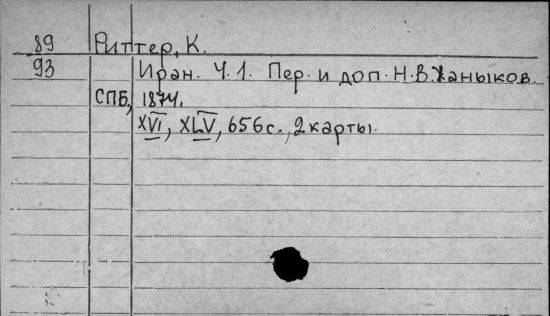 89 Риттер, К.
93 Иран. Ч.1. Пер. и доп. Н.В.Ханыков.
СПБ, 1874.
XVI, XLV, 656с., 2карты.